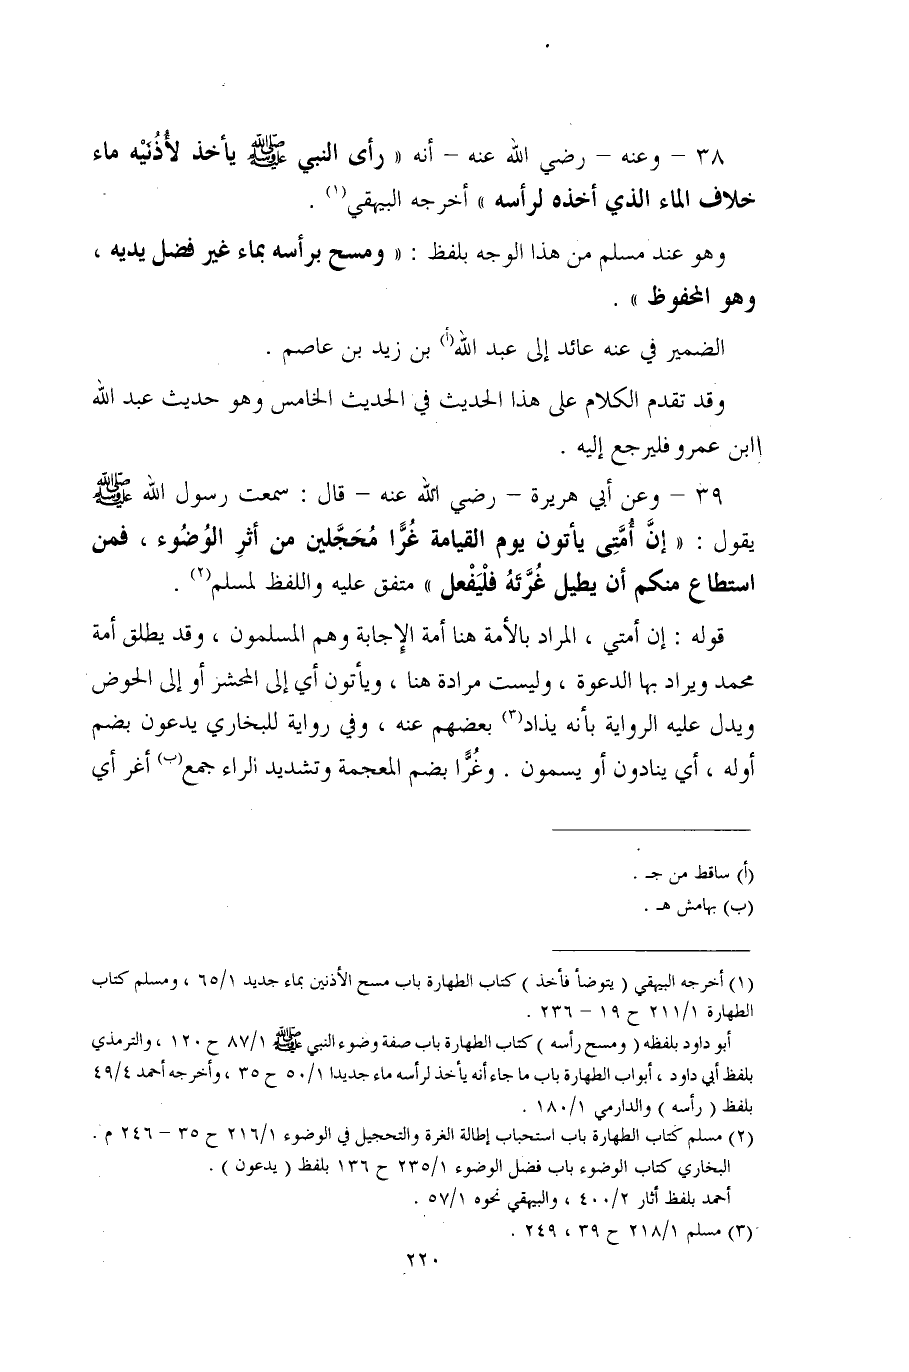 ٣٨ – وعنه – رضي الله عنه – أنه « رأى النبي ﷺ يأخذ لأُذُنَيْه ماء
خلاف الماء الذي أخذه لرأسه » أخرجه البيهقي(١) .
وهو عند مسلم من هذا الوجه بلفظ : « ومسح برأسه بماء غير فضل يديه ،
وهو المحفوظ » .
الضمير في عنه عائد إلى عبد الله(أ) بن زيد بن عاصم .
وقد تقدم الكلام على هذا الحديث في الحديث الخامس وهو حديث عبد الله
اابن عمرو فليرجع إليه .
٣٩ – وعن أبي هريرة – رضي الله عنه – قال : سمعت رسول الله ﷺ
يقول : « إنَّ أُمَّتِى يأتون يوم القيامة غُرًّا مُحَجَّلين من أثرِ الوُضُوء ، فمن
استطاع منكم أن يطيل غُرَّتَهُ فلْيَفْعل » متفق عليه واللفظ لمسلم(٢) .
قوله : إن أمتي ، المراد بالأمة هنا أمة الإجابة وهم المسلمون ، وقد يطلق أمة
محمد ويراد بها الدعوة ، وليست مرادة هنا ، ويأتون أي إلى المحشر أو إلى الحوض
ويدل عليه الرواية بأنه يذاد(٣) بعضهم عنه ، وفي رواية للبخاري يدعون بضم
أوله ، أي ينادون أو يسمون . وغُرًّا بضم المعجمة وتشديد الراء جمع(ب) أغر أي
(أ) ساقط من جـ .
(ب) بهامش هـ .
(١) أخرجه البيهقي ( يتوضأ فأخذ ) كتاب الطهارة باب مسح الأذنين بماء جديد ٦٥/١ ، ومسلم كتاب
الطهارة ٢١١/١ ح ١٩ – ٢٣٦ .
أبو داود بلفظه ( ومسح رأسه ) كتاب الطهارة باب صفة وضوء النبي ﷺ ٨٧/١ ح ١٢٠ ، والترمذي
بلفظ أبي داود ، أبواب الطهارة باب ما جاء أنه يأخذ لرأسه ماء جديدا ٥٠/١ ح ٣٥ ، وأخرجه أحمد ٤٩/٤
بلفظ ( رأسه ) والدارمي ١٨٠/١ .
(٢) مسلم كتاب الطهارة باب استحباب إطالة الغرة والتحجيل في الوضوء ٢١٦/١ ح ٣٥ – ٢٤٦ م .
البخاري كتاب الوضوء باب فضل الوضوء ٢٣٥/١ ح ١٣٦ بلفظ ( يدعون ) .
أحمد بلفظ أثار ٤٠٠/٢ ، والبيهقي نحوه ٥٧/١ .
(٣) مسلم ٢١٨/١ ح ٣٩ ، ٢٤٩ .
٢٢٠